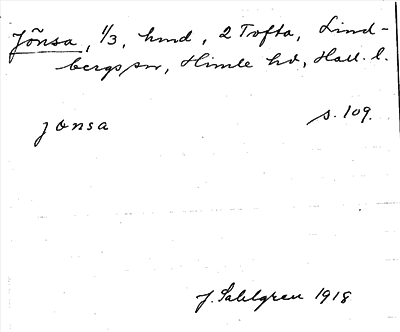 Jõnsa, 1/3, hmd, 2 Tofta, Lind-
bergs sn, Himle hd, Hall. l.
jonsa s. 109.
J. Sahlgren 1918